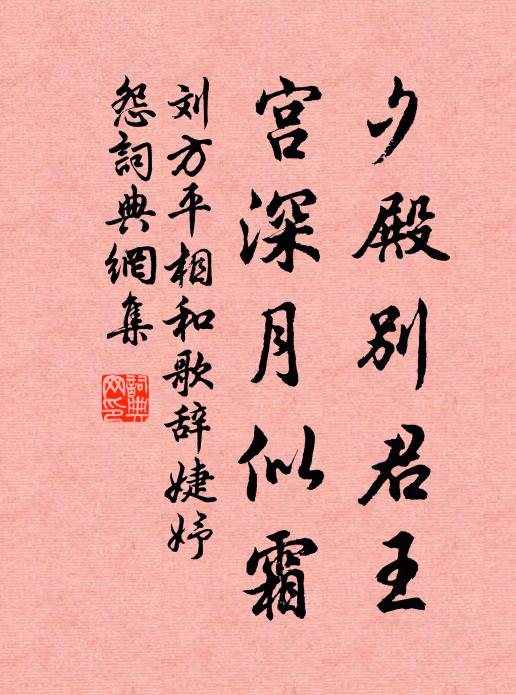 夕殿别君王
宫深月似霜
刘方平相和歌辞婕妤
怨詞典網集
詞典网印